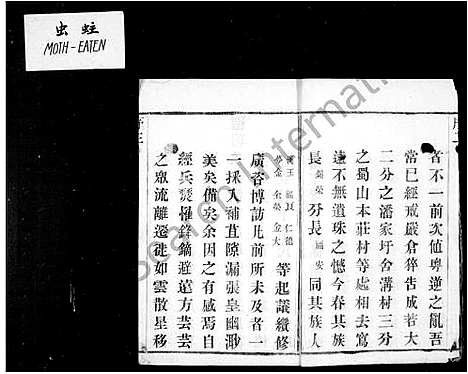 虫 蛀
MOTH-EATEN
者不一前次値粵逆之亂吾
常巳經戒嚴倉猝告成若大
二分之潘家圩舍溝村三分
之蜀山本莊村等處相去窵
遠不無遺珠之憾今春其族
長 分長 同其族人
等起議續修
廣咨博訪凡前所未及者一
一採入補苴罅漏張皇幽渺
美矣備矣余因之有感焉自
經兵燹鋒鏑避遠方芸芸
之眾流離遷徙如雲散星移